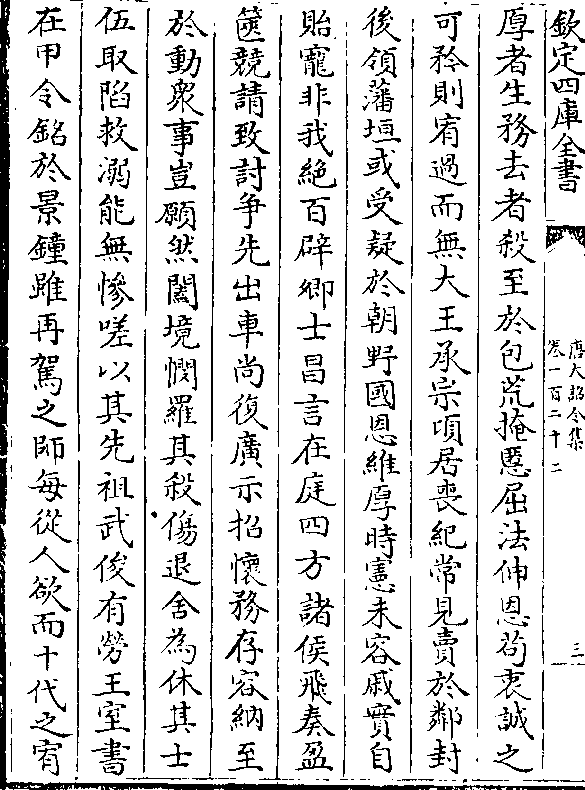 欽定四庫全書
唐大詔令集
卷一百二十二
三
厚者生務去者殺至於包荒掩慝屈法伸恩苟衷誠之
可矜則宥過而無大王承宗頃居喪紀常見賣於鄰封
後領藩垣或受疑於朝野國恩維厚時憲未容戚實自
貽寵非我絶百辟卿士昌言在庭四方諸侯飛奏盈
篋競請致討爭先出車尚復廣示招懷務存容納至
於動衆事豈願然闔境憫羅其殺傷退舍為休其士
伍取陷救溺能無慘嗟以其先祖武俊有勞王室書
在甲令銘於景鐘雖再駕之師每從人欲而十代之宥